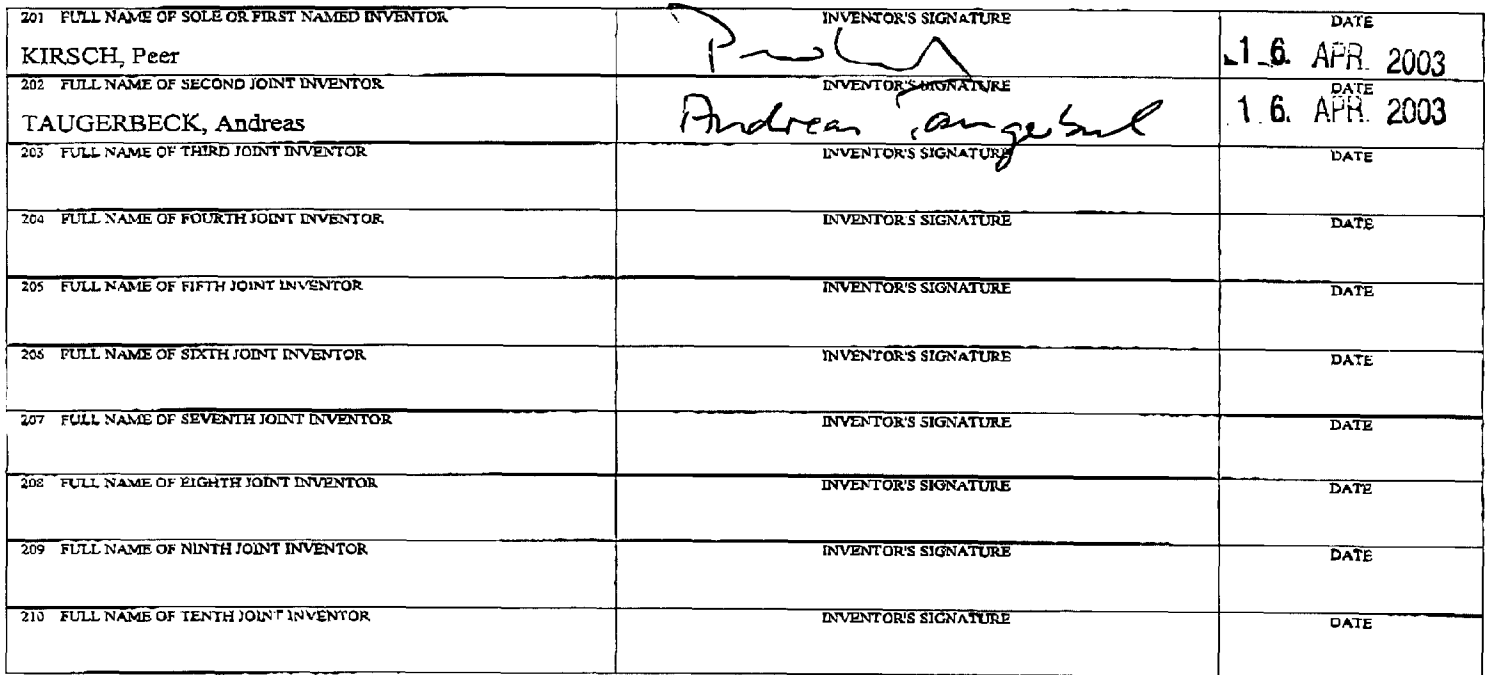 201 FULL NAME OF SOLE OR FIRST NAMED INVENTOR INVENTOR'S SIGNATURE DATE
KIRSCH, Peer 16. APR. 2003
202 FULL NAME OF SECOND JOINT INVENTOR INVENTOR'S SIGNATURE DATE
TAUGERBECK, Andreas Andreas Taugerbeck 16. APR. 2003
203 FULL NAME OF THIRD JOINT INVENTOR INVENTOR'S SIGNATURE DATE
204 FULL NAME OF FOURTH JOINT INVENTOR INVENTOR'S SIGNATURE DATE
205 FULL NAME OF FIFTH JOINT INVENTOR INVENTOR'S SIGNATURE DATE
206 FULL NAME OF SIXTH JOINT INVENTOR INVENTOR'S SIGNATURE DATE
207 FULL NAME OF SEVENTH JOINT INVENTOR INVENTOR'S SIGNATURE DATE
208 FULL NAME OF EIGHTH JOINT INVENTOR INVENTOR'S SIGNATURE DATE
209 FULL NAME OF NINTH JOINT INVENTOR INVENTOR'S SIGNATURE DATE
210 FULL NAME OF TENTH JOINT INVENTOR INVENTOR'S SIGNATURE DATE